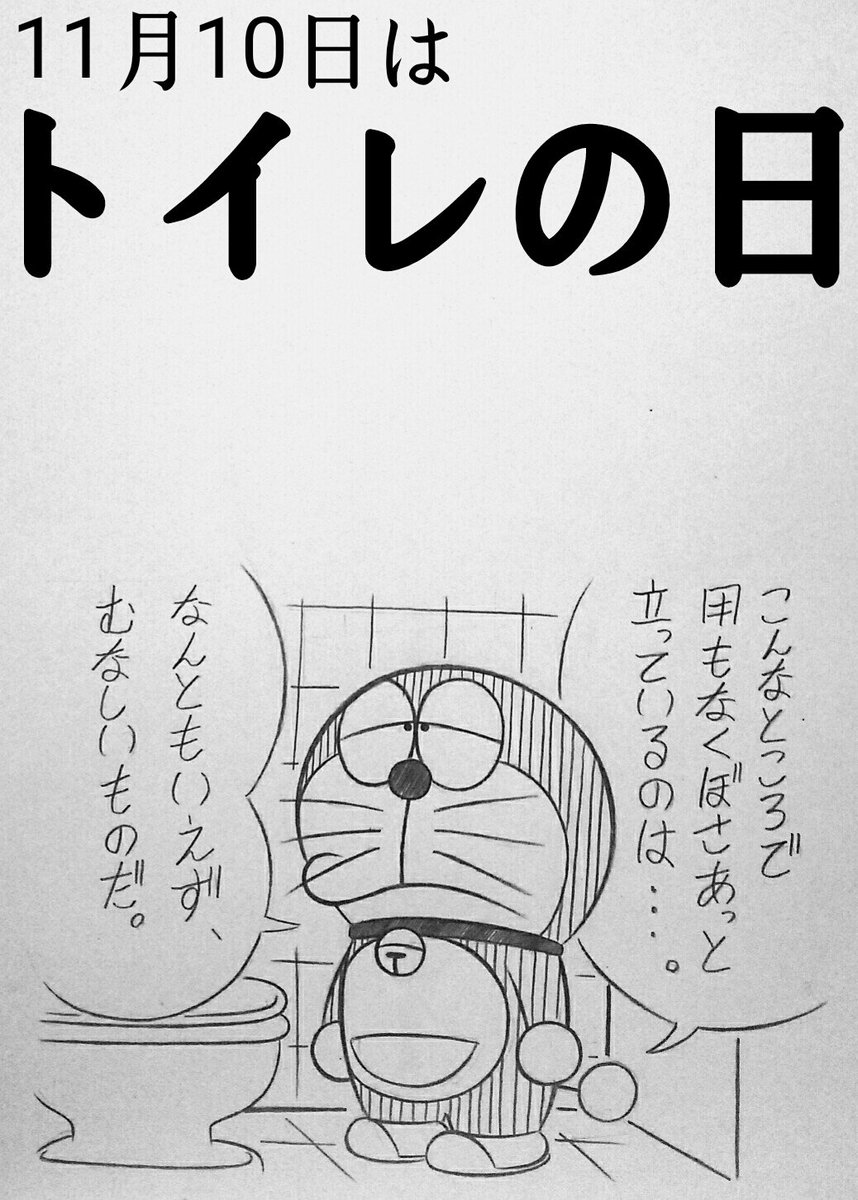 11月10日は
トイレの日
こんなところで
用もなくぼさあっと
立っているのは・・・。
なんともいえず、
むなしいものだ。